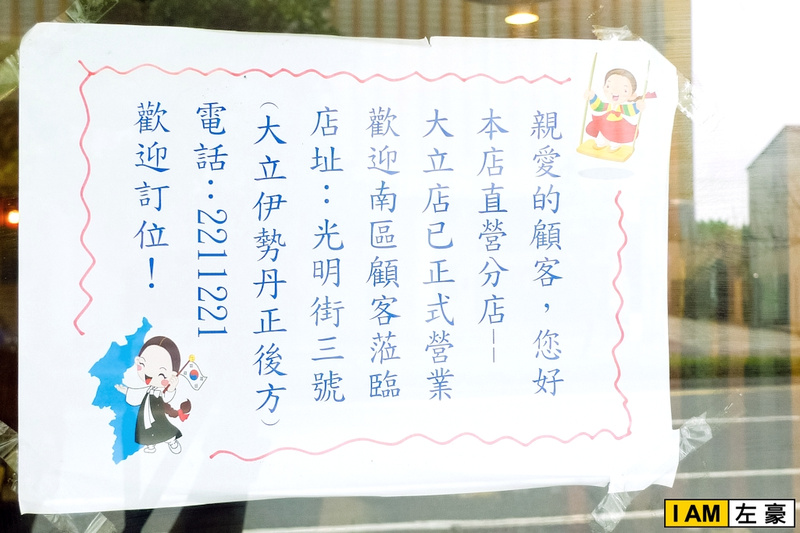 親愛的顧客，您好
本店直營分店——
大立店已正式營業
歡迎南區顧客蒞臨
店址：光明街三號
（大立伊勢丹正後方）
電話：2211221
歡迎訂位！
I AM 左豪